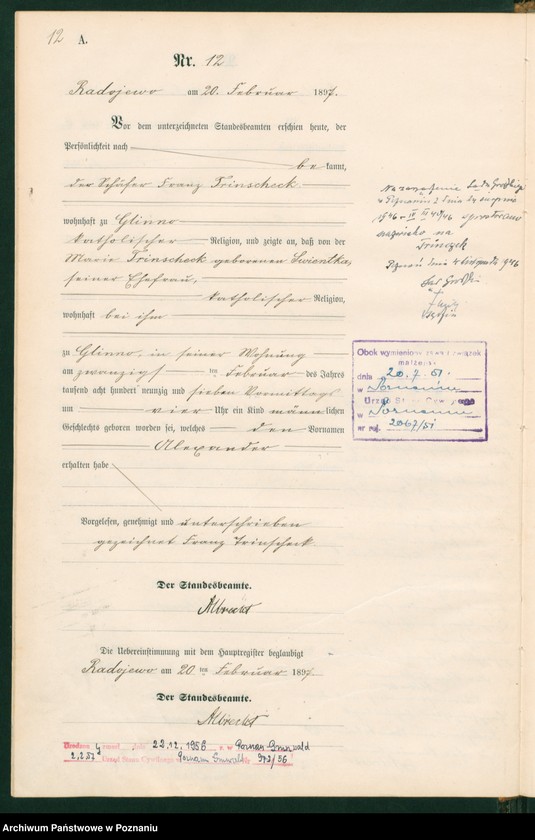 12 A.
Nr. 12
Radojewo am 20. Februar 1897.
Vor dem unterzeichneten Standesbeamten erschien heute, der
Persönlichkeit nach
be kannt,
der Schäfer Franz Trinscheck
wohnhaft zu Glinno
katholischer Religion, und zeigte an, daß von der
Marie Trinscheck geborenen Swientka,
seiner Ehefrau,
katholischer Religion,
wohnhaft bei ihm
zu Glinno, in seiner Wohnung
am zwanzigs ten Februar des Jahres
tausend acht hundert neunzig und sieben Vormittags
um vier Uhr ein Kind männ lichen
Geschlechts geboren worden sei, welches den Vornamen
Alexander
erhalten habe
Vorgelesen, genehmigt und unterschrieben
gezeichnet Franz Trinscheck
Der Standesbeamte.
Albrecht
Die Uebereinstimmung mit dem Hauptregister beglaubigt
Radojewo am 20 ten Februar 1897.
Der Standesbeamte.
Albrecht
Na zarządzenie
w Poznaniu z dnia
1946
nazwisko na
Poznań dnia 1946
Obok wymieniony związek
małżeń
dnia 20.7.51.
w Poznaniu
Urząd
w Poznaniu
nr rej. 2067/51
dnia 22.12.1956 r. w Poznań Grunwald
2.2.57 Urząd Stanu Cywilnego Poznań Grunwald 972/56
Archiwum Państwowe w Poznaniu